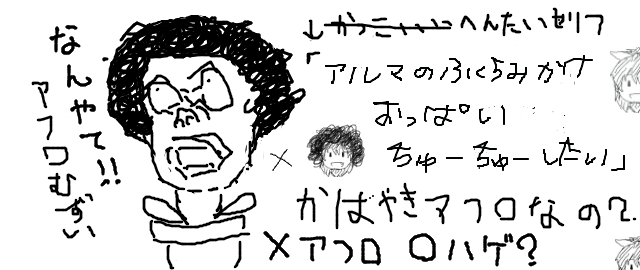 なんやて!!
アフロむずい
↓かっこいいヘんたいセリフ
「アルマのふくらみかけ
おっぱい
ちゅーちゅーしたい」
かはやきアフロなの?
×アフロ ○ハゲ?